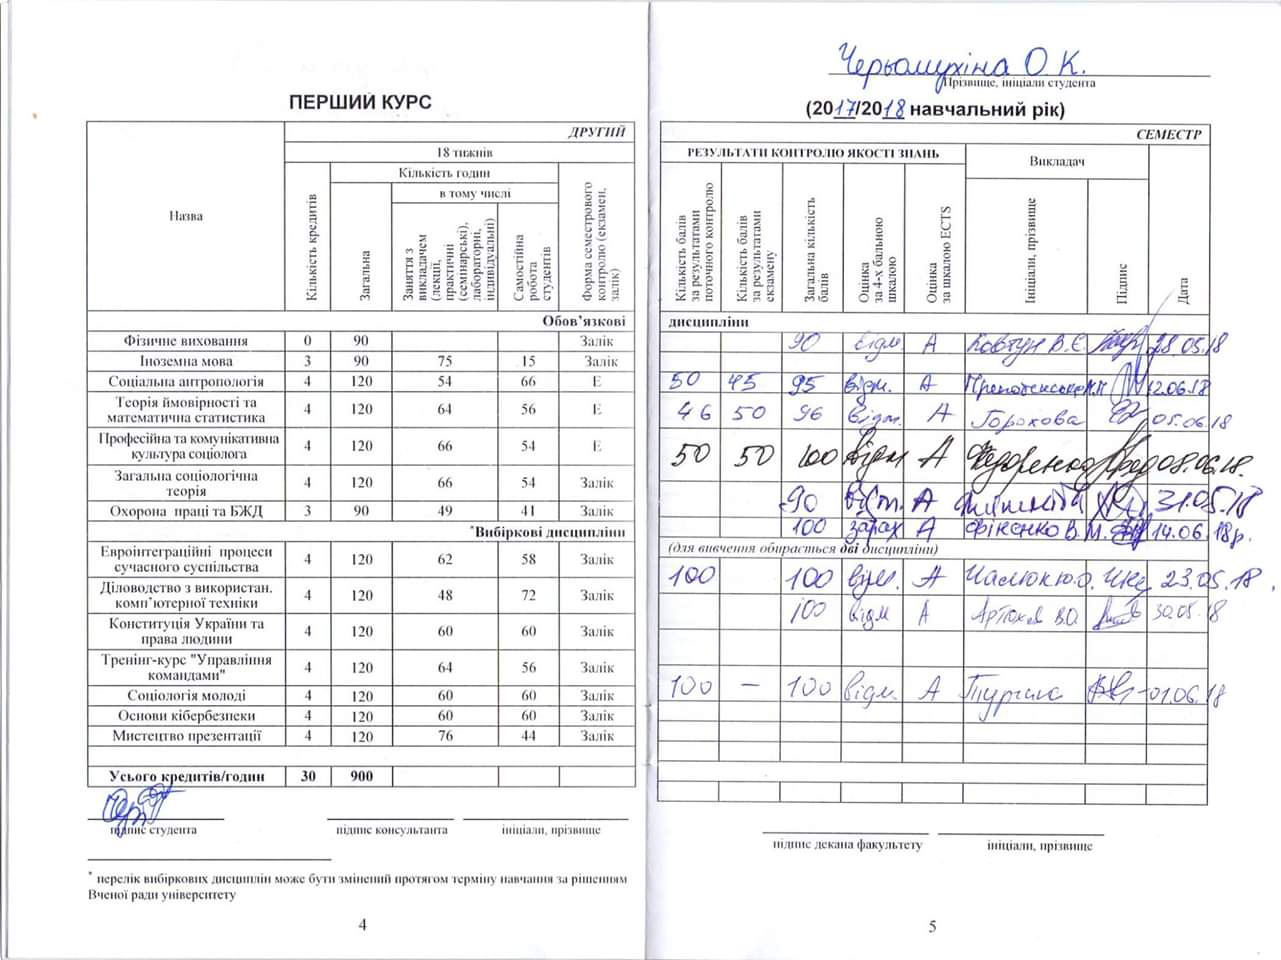 ПЕРШИЙ КУРС
ДРУГИЙ
18 тижнів
Назва
Кількість кредитів
Кількість годин
Загальна
в тому числі
Заняття з викладачем (лекції, практичні (семінарські), лабораторні, індивідуальні)
Самостійна робота студентів
Форма семестрового контролю (екзамен, залік)
Обов’язкові
Фізичне виховання 0 90 Залік
Іноземна мова 3 90 75 15 Залік
Соціальна антропологія 4 120 54 66 Е
Теорія ймовірності та
математична статистика 4 120 64 56 Е
Професійна та комунікативна
культура соціолога 4 120 66 54 Е
Загальна соціологічна
теорія 4 120 66 54 Залік
Охорона праці та БЖД 3 90 49 41 Залік
*Вибіркові дисципліни
Євроінтеграційні процеси
сучасного суспільства 4 120 62 58 Залік
Діловодство з використан.
комп’ютерної техніки 4 120 48 72 Залік
Конституція України та
права людини 4 120 60 60 Залік
Тренінг-курс "Управління
командами" 4 120 64 56 Залік
Соціологія молоді 4 120 60 60 Залік
Основи кібербезпеки 4 120 60 60 Залік
Мистецтво презентації 4 120 76 44 Залік
Усього кредитів/годин 30 900
підпис студента підпис консультанта ініціали, прізвище
* перелік вибіркових дисциплін може бути змінений протягом терміну навчання за рішенням
Вченої ради університету
4
Черьомухіна О. К.
Прізвище, ініціали студента
(2017/2018 навчальний рік)
СЕМЕСТР
РЕЗУЛЬТАТИ КОНТРОЛЮ ЯКОСТІ ЗНАНЬ
Викладач
Кількість балів за результатами поточного контролю
Кількість балів за результатами екзамену
Загальна кількість балів
Оцінка за 4-х бальною шкалою
Оцінка за шкалою ECTS
Ініціали, прізвище
Підпис
Дата
дисципліни
90 відм А Ковтун В.Є. 28.05.18
50 45 95 відм. А 12.06.18
46 50 96 відм. А Горохова 05.06.18
50 50 100 відм А Федоренко 08.06.18.
90 А 31.05.18
100 зарах А Фікєнко В.М. 14.06.18р.
(для вивчення обирається дві дисципліни)
100 100 відм. А 23.05.18.
100 відм А В.О. 30.05.18
100 — 100 відм. А 01.06.18
підпис декана факультету ініціали, прізвище
5